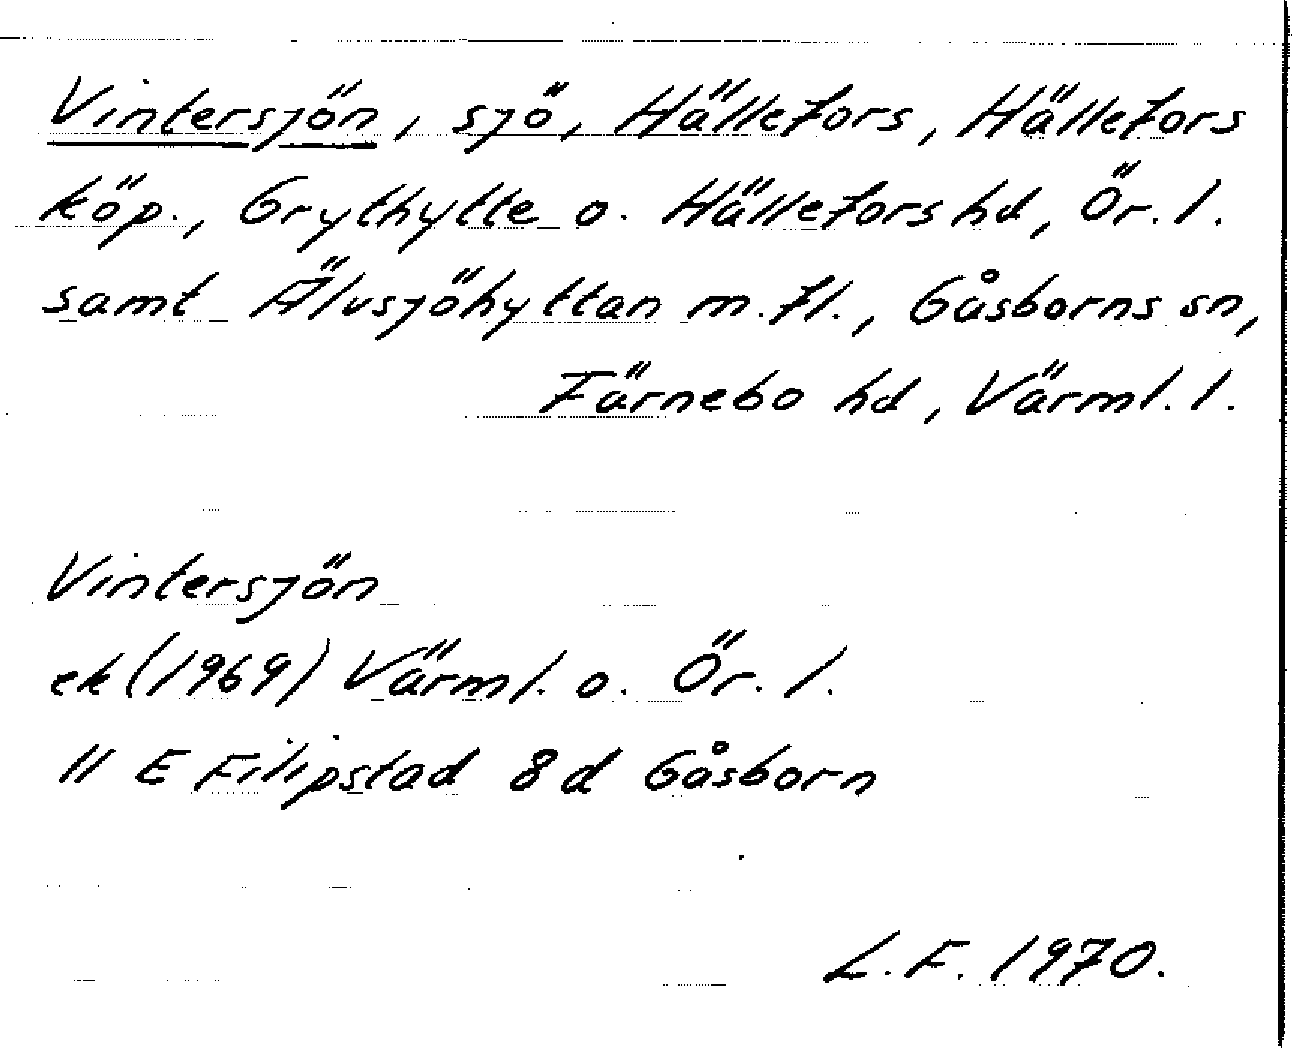 Vintersjön, sjö, Hällefors, Hällefors
köp., Grythytte o. Hällefors hd, Ör. l.
samt Älvsjöhyttan m. fl., Gåsborns sn,
Färnebo hd, Värml. l.
Vintersjön
ek (1969) Värml. o. Ör. l.
11 E Filipstad 8 d Gåsborn
L. F. 1970.